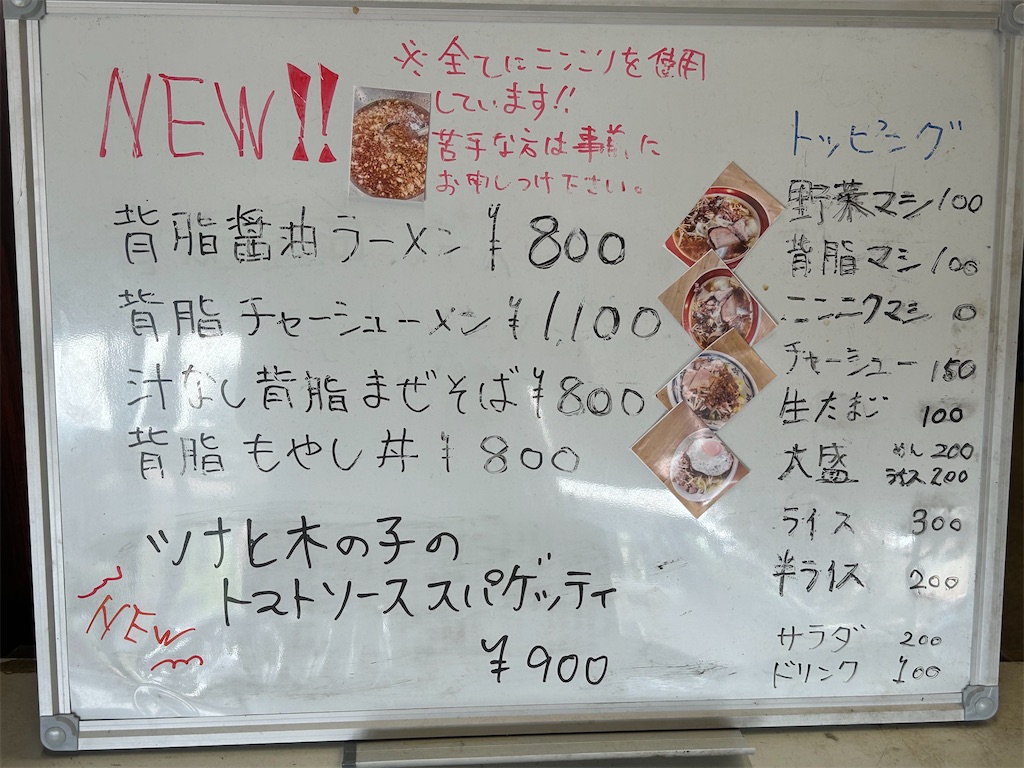 NEW!!
※全てにニンニクを使用
しています!!
苦手な方は事前に
お申しつけ下さい。
背脂醤油ラーメン ¥800
背脂チャーシューメン ¥1,100
汁なし背脂まぜそば ¥800
背脂もやし丼 ¥800
ツナと木の子の
トマトソーススパゲッティ
¥900
NEW
トッピング
野菜マシ 100
背脂マシ 100
ニンニクマシ 0
チャーシュー 150
生たまご 100
大盛 めん 200
ライス 200
ライス 300
半ライス 200
サラダ 200
ドリンク 100